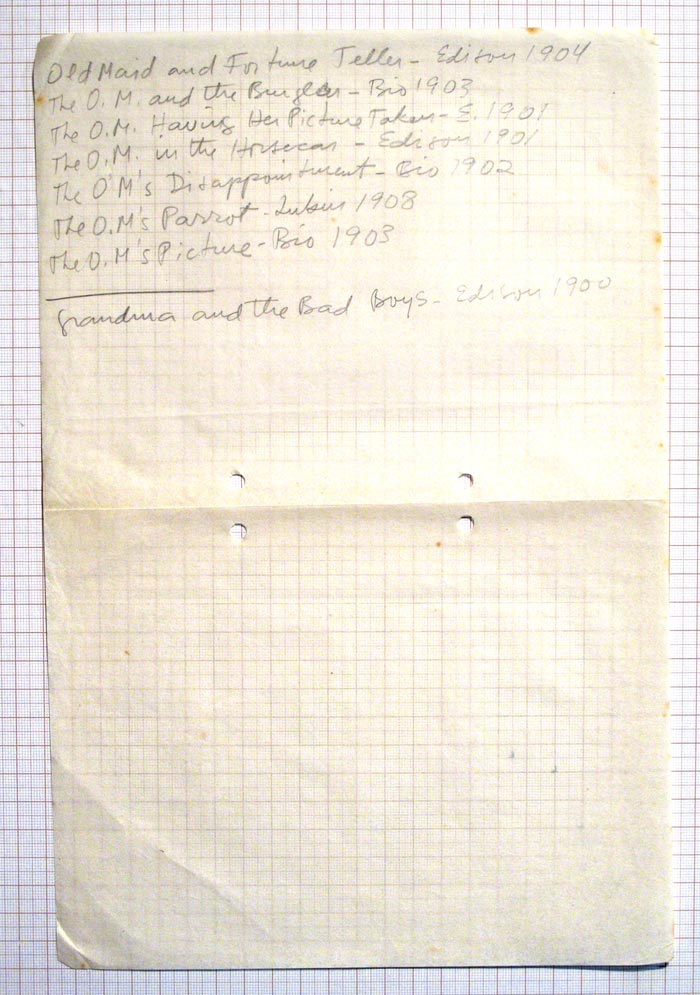 Old Maid and Fortune Teller - Edison 1904
The O. M. and the Burglar - Bio 1903
The O.M. Having Her Picture Taken - E. 1901
The O.M. in the Horsecar - Edison 1901
The O'M's Disappointment - Bio 1902
The O.M's Parrot - Lubin 1908
The O.M's Picture - Bio 1903
Grandma and the Bad Boys - Edison 1900